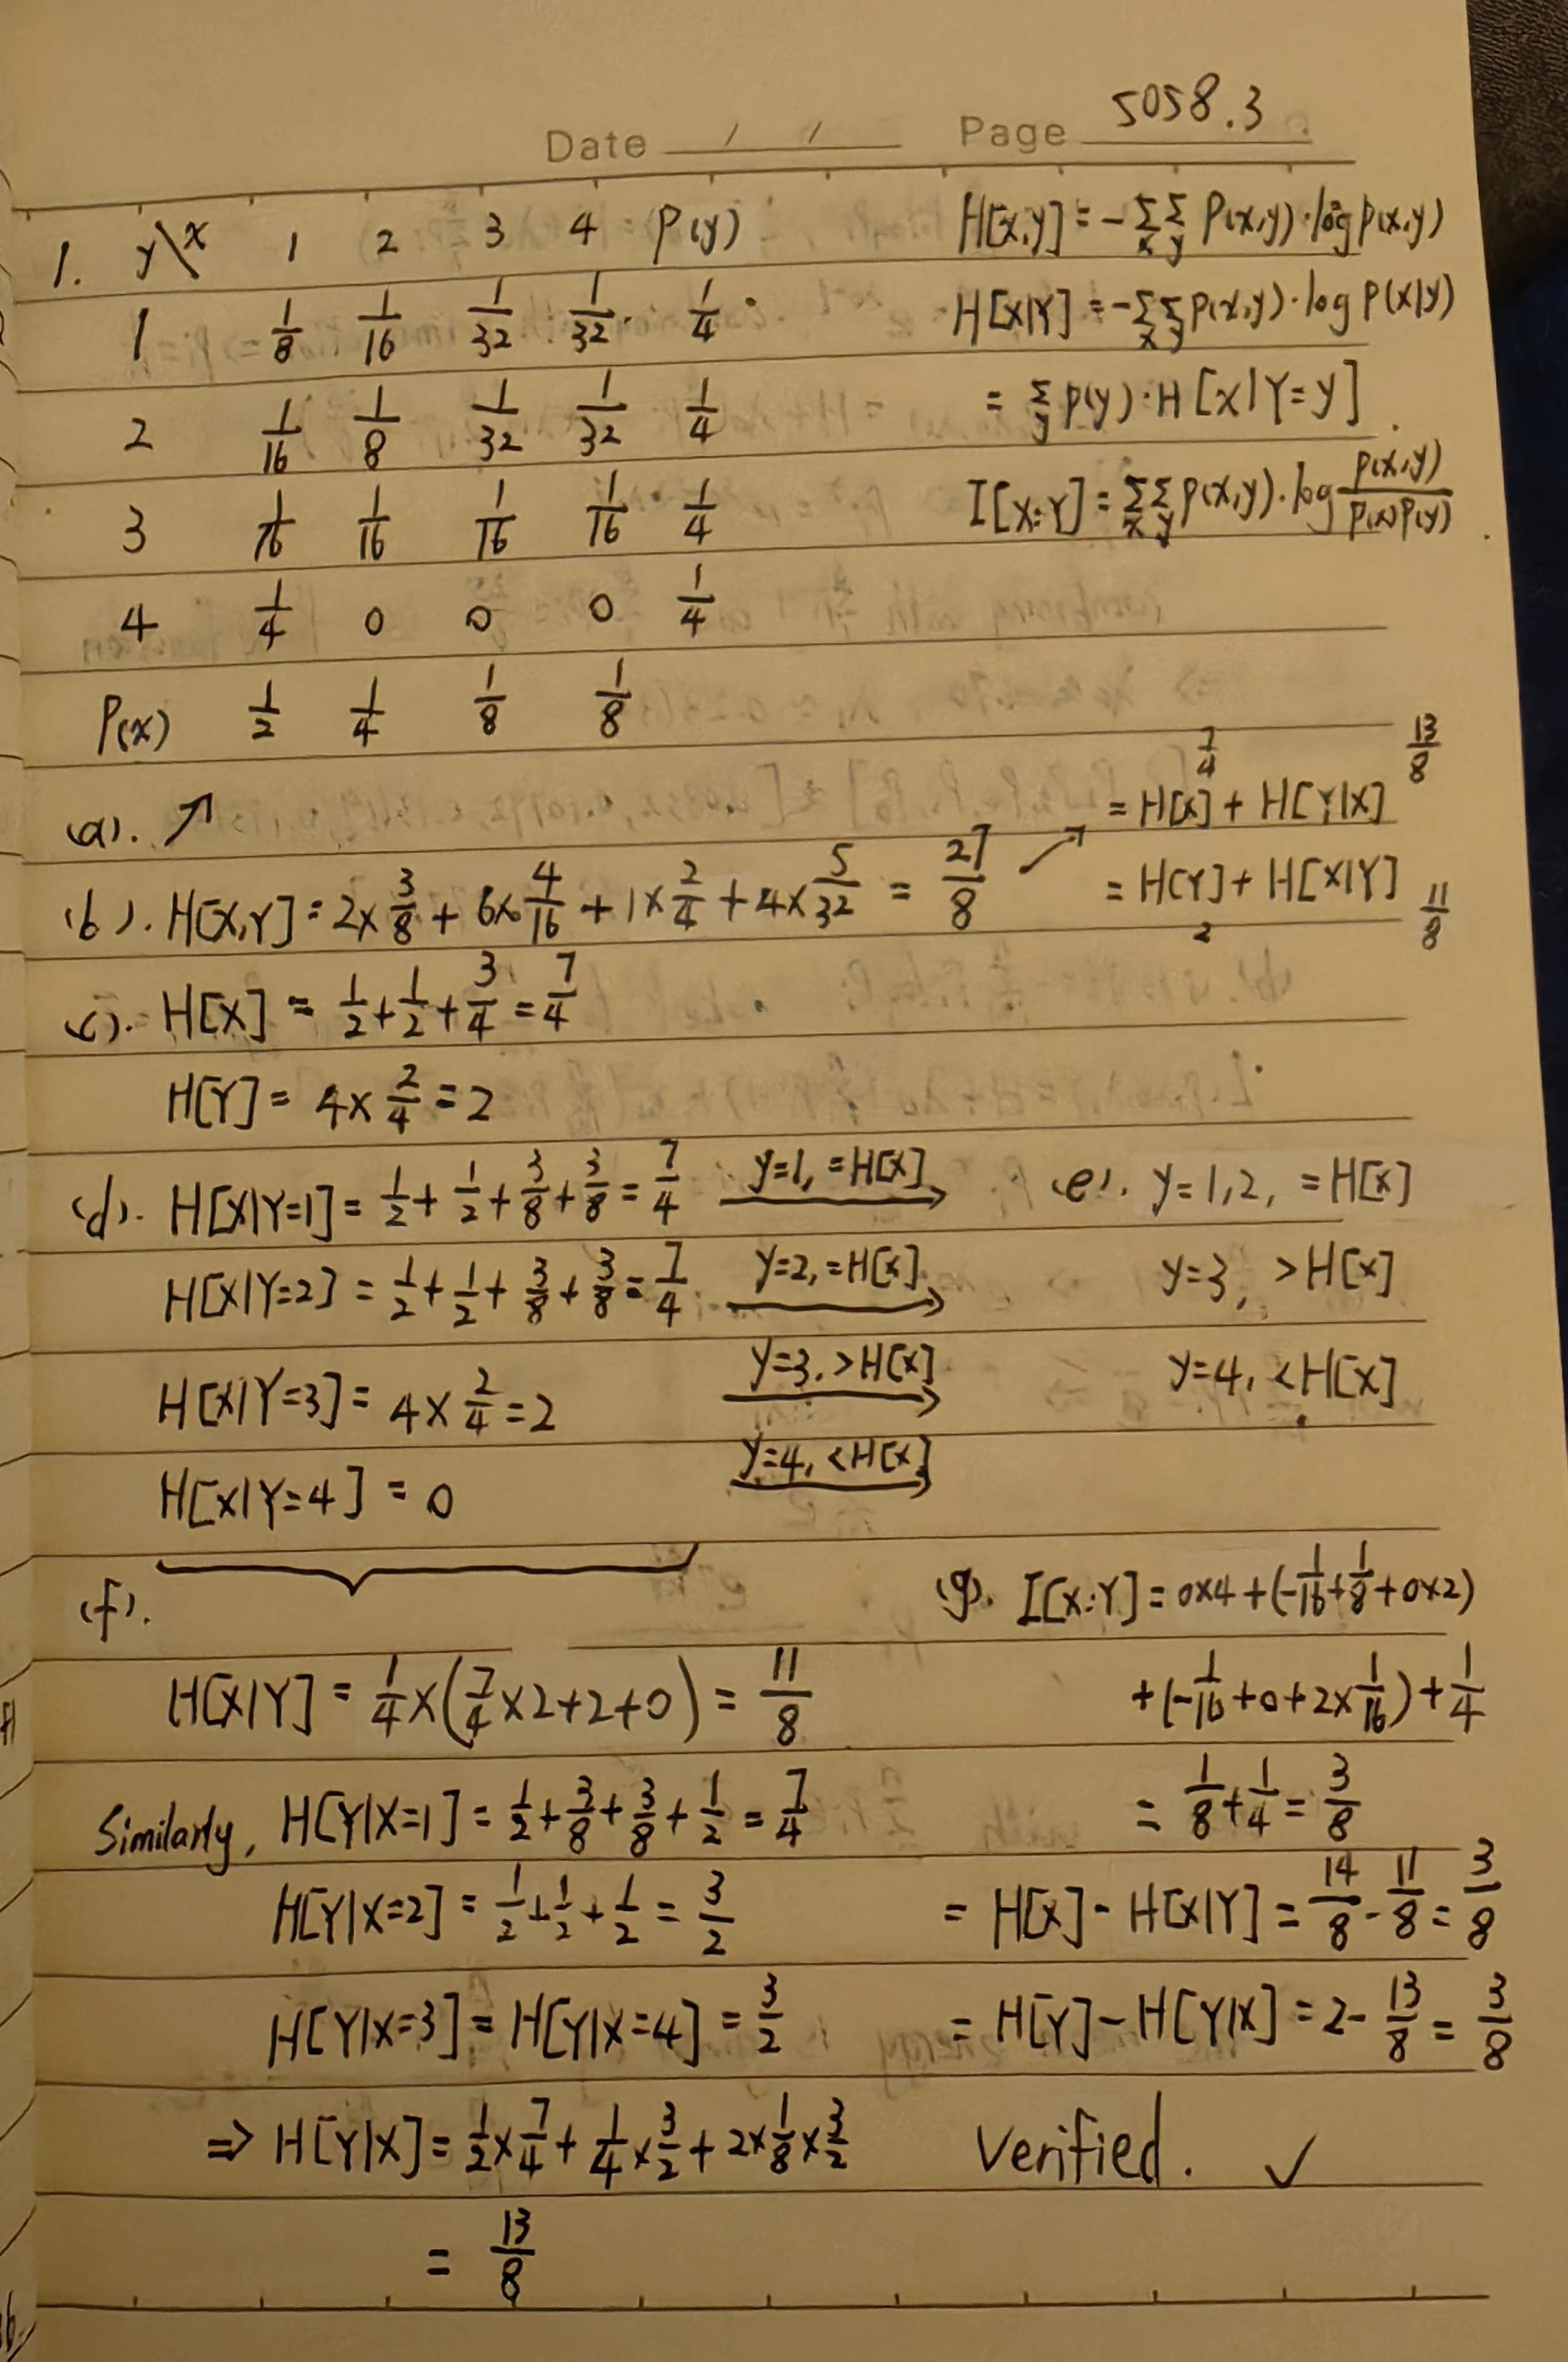 Date / / Page 5058.3
1. y\x 1 2 3 4 P(y)
1 1/8 1/16 1/32 1/32 1/4
2 1/16 1/8 1/32 1/32 1/4
3 1/16 1/16 1/16 1/16 1/4
4 1/4 0 0 0 1/4
P(x) 1/2 1/4 1/8 1/8
H[X,Y] = -ΣxΣy P(x,y)·log P(x,y)
H[X|Y] = -ΣxΣy P(x,y)·log P(x|y)
= Σy P(y)·H[X|Y=y]
I[X:Y] = ΣxΣy P(x,y)·log P(x,y)/P(x)P(y)
(a). ↗
(b). H[X,Y] = 2×3/8 + 6×4/16 + 1×2/4 + 4×5/32 = 27/8 ↗
7/4 13/8
= H[X] + H[Y|X]
= H[Y] + H[X|Y]
2 11/8
(c). H[X] = 1/2 + 1/2 + 3/4 = 7/4
H[Y] = 4×2/4 = 2
(d). H[X|Y=1] = 1/2 + 1/2 + 3/8 + 3/8 = 7/4 y=1, =H[X] →
H[X|Y=2] = 1/2 + 1/2 + 3/8 + 3/8 = 7/4 y=2, =H[X] →
H[X|Y=3] = 4×2/4 = 2 y=3, >H[X] →
H[X|Y=4] = 0 y=4, <H[X] →
(e). y=1,2, =H[X]
y=3, >H[X]
y=4, <H[X]
(f).
H[X|Y] = 1/4×(7/4×2+2+0) = 11/8
Similarly, H[Y|X=1] = 1/2 + 3/8 + 3/8 + 1/2 = 7/4
H[Y|X=2] = 1/2 + 1/2 + 1/2 = 3/2
H[Y|X=3] = H[Y|X=4] = 3/2
⇒ H[Y|X] = 1/2×7/4 + 1/4×3/2 + 2×1/8×3/2
= 13/8
(g). I[X:Y] = 0×4 + (-1/16 + 1/8 + 0×2)
+ (-1/16 + 0 + 2×1/16) + 1/4
= 1/8 + 1/4 = 3/8
= H[X] - H[X|Y] = 14/8 - 11/8 = 3/8
= H[Y] - H[Y|X] = 2 - 13/8 = 3/8
Verified. ✓